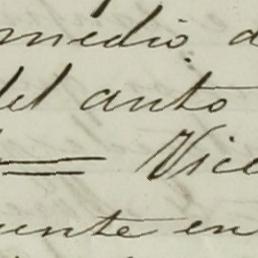 medio a
del auto
= Vice
uente en